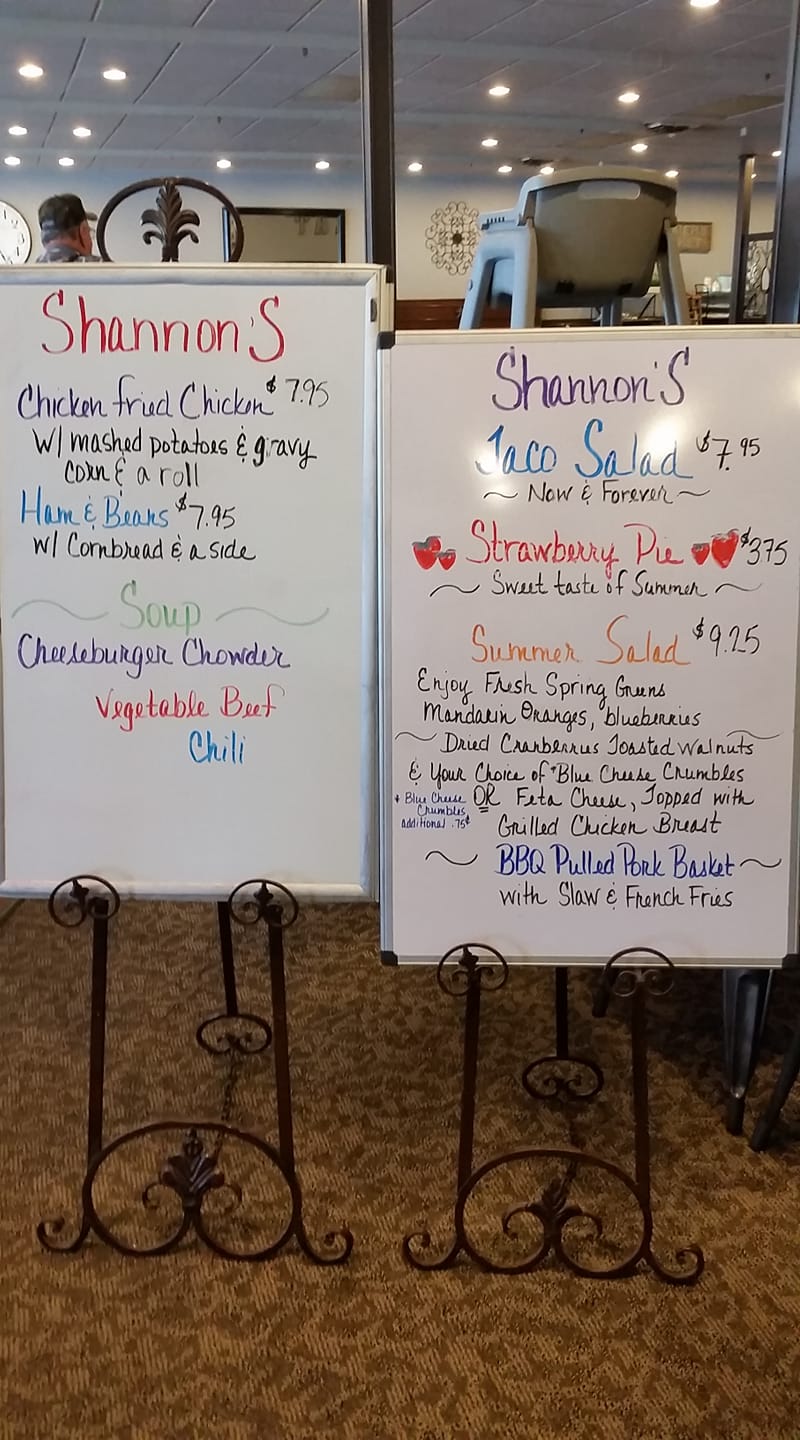 Shannon's
Chicken fried Chicken $7.95
W/ mashed potatoes & gravy
corn & a roll
Ham & Beans $7.95
w/ Cornbread & a side
Soup
Cheeseburger Chowder
Vegetable Beef
Chili
Shannon's
Taco Salad $7.95
~ Now & Forever ~
Strawberry Pie $3.75
~ Sweet taste of Summer ~
Summer Salad $9.25
Enjoy Fresh Spring Greens
Mandarin Oranges, blueberries
Dried Cranberries Toasted Walnuts
& Your Choice of *Blue Cheese Crumbles
OR Feta Cheese, Topped with
Grilled Chicken Breast
* Blue Cheese
Crumbles
additional .75¢
~ BBQ Pulled Pork Basket ~
with Slaw & French Fries